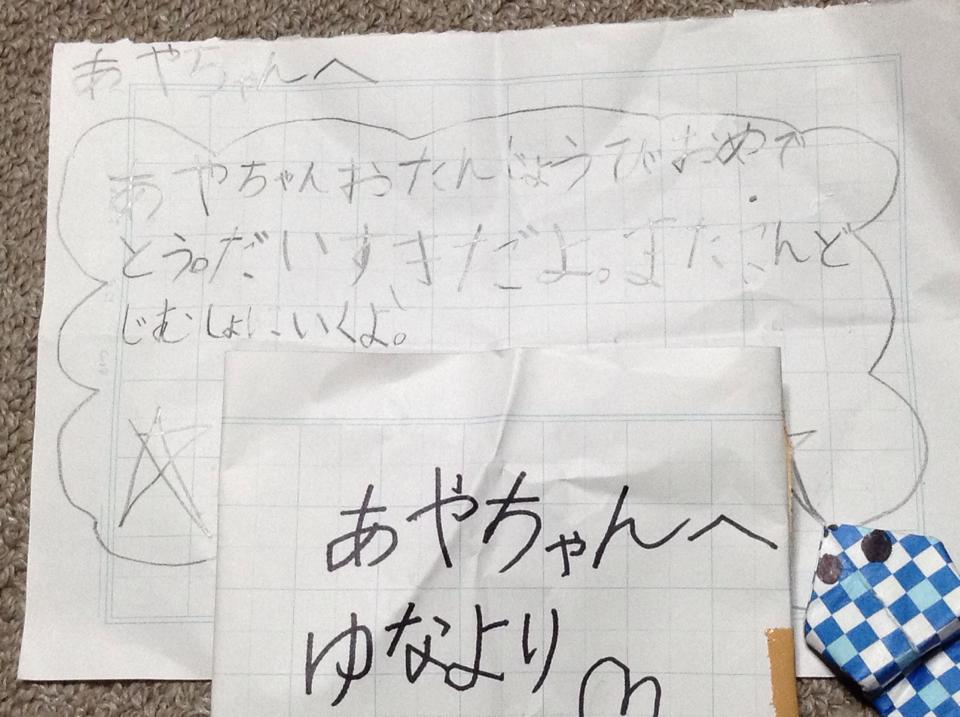 あやちゃんへ
あやちゃんおたんじょうびおめで
とう。だいすきだよ。またこんど
じむしょにいくよ。
あやちゃんへ
ゆなより